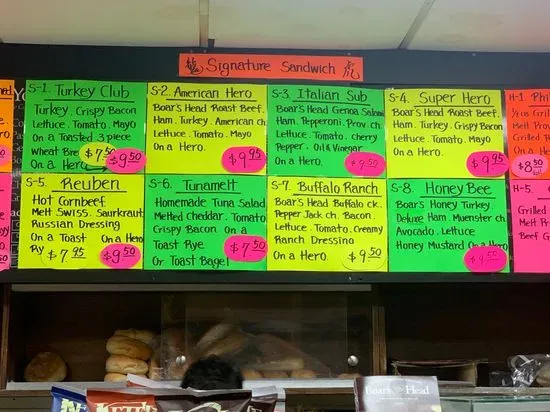 龍 Signature Sandwich 虎
S-1. Turkey Club
Turkey, Crispy Bacon
Lettuce. Tomato. Mayo
On a Toasted 3 piece
Wheat Bre
On a Hero.
$7.50
$9.50
S-2. American Hero
Boar's Head Roast Beef.
Ham. Turkey. American ch
Lettuce. Tomato. Mayo
On a Hero.
$9.95
S-3. Italian Sub
Boar's Head Genoa Salami
Ham. Pepperoni. Prov. ch
Lettuce. Tomato. Cherry
Pepper. Oil & Vinegar
On a Hero.
$9.50
S-4. Super Hero
Boar's Head Roast Beef
Ham. Turkey. Crispy Bacon
Lettuce. Tomato. Mayo
On a Hero.
$9.95
H-1. Phi
Grilled
On a
$8.50
S-5. Reuben
Hot Cornbeef
Melt Swiss. Saurkraut
Russian Dressing
On a Toast On a Hero
Ry
$7.95
$9.50
S-6. Tunamelt
Homemade Tuna Salad
Melted Cheddar. Tomato
Crispy Bacon On a
Toast Rye
Or Toast Bagel
$7.50
S-7. Buffalo Ranch
Boar's Head Buffalo ck.
Pepper Jack ch. Bacon.
Lettuce. Tomato. Creamy
Ranch Dressing
On a Hero.
$9.50
S-8. Honey Bee
Boar's Honey Turkey.
Deluxe Ham. Muenster ch
Avocado. Lettuce
Honey Mustard On a Hero
$9.50
H-5.
Grilled
Melt Pr
Beef G
Boar's Head